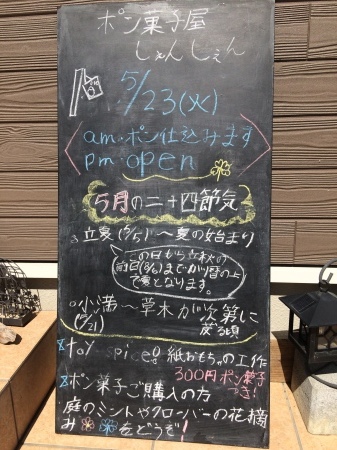 ポン菓子屋
しゃんしぇん
5/23(火)
am・ポン仕込みます
pm・open
5月の二十四節気
立夏(5/5)～夏の始まり
この日から立秋の
前日(8/6)までが暦の上
で夏となります。
小満～草木が次第に
(5/21) 茂る頃
toy piceo 紙おもちゃの工作
300円ポン菓子
つき!
ポン菓子ご購入の方
庭のミントやクローバーの花摘
みをどうぞ!